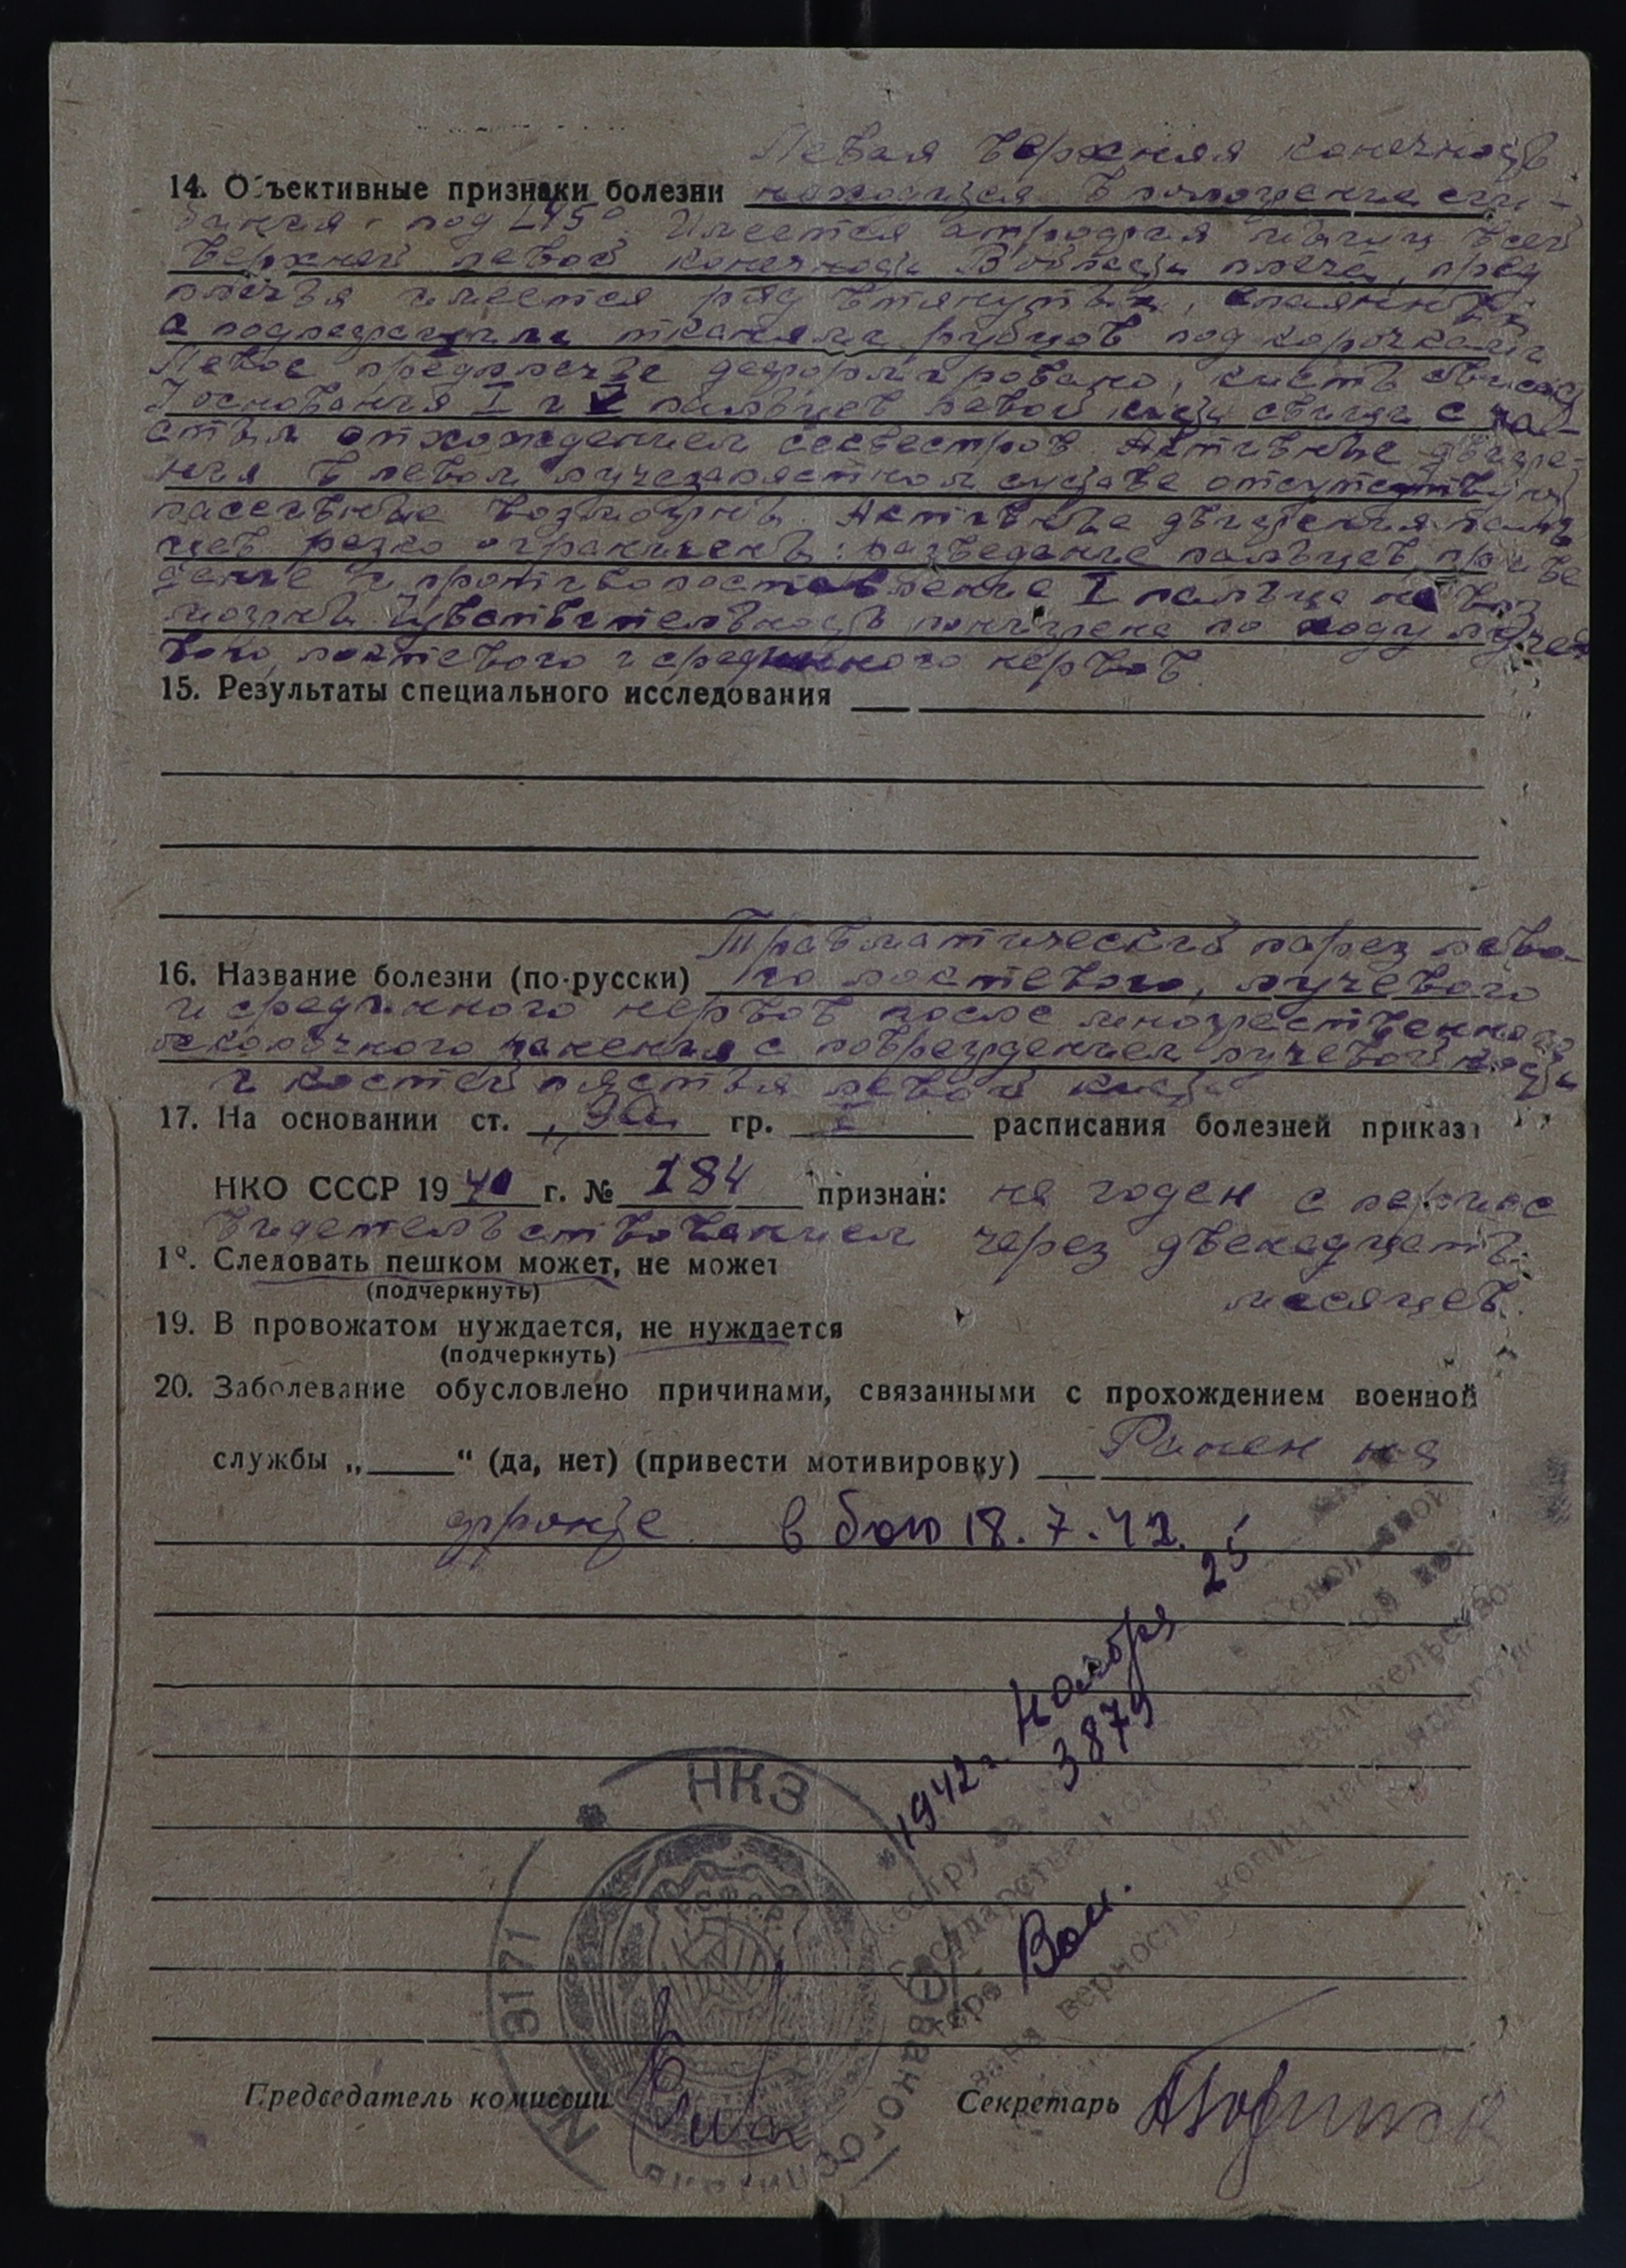 Левая верхняя конечность
14. Объективные признаки болезни находится в положении сги-
бания под ∠45°. Имеется атрофия мышц всей
верхней левой конечности. В области плеча, пред
плечья имеется ряд втянутых, спаянных
с подлежащими тканями рубцов под корочками
Левое предплечье деформировано, кисть
У основания I и V пальцев левой кисти свищи с ча-
стым отхождением секвестров. Активные движе-
ния в левом лучезапястном суставе отсутствуют
пассивные возможны. Активные движения паль
цев резко ограничены: разведение пальцев, приве
дение и противопоставление I пальца не воз
можны. Чувствительность понижена по ходу луче
вого, локтевого и срединного нервов.
15. Результаты специального исследования
Травматический парез лево-
16. Название болезни (по-русски) го локтевого, лучевого
и срединного нервов после множественного
осколочного ранения с повреждением лучевой кости
и костей пястья левой кисти
17. На основании ст. 9а гр. I расписания болезней приказа
НКО СССР 1940 г. № 184 признан: не годен с переос
видетельствованием через двенадцать
месяцев.
18. Следовать пешком может, не может
(подчеркнуть)
19. В провожатом нуждается, не нуждается
(подчеркнуть)
20. Заболевание обусловлено причинами, связанными с прохождением военной
службы „ “ (да, нет) (привести мотивировку) Ранен на
фронте. в бою 18.7.42.
1942 г. Ноября 25
3879
НКЗ
РСФСР
№ 3171
верность копии
Председатель комиссии
Секретарь